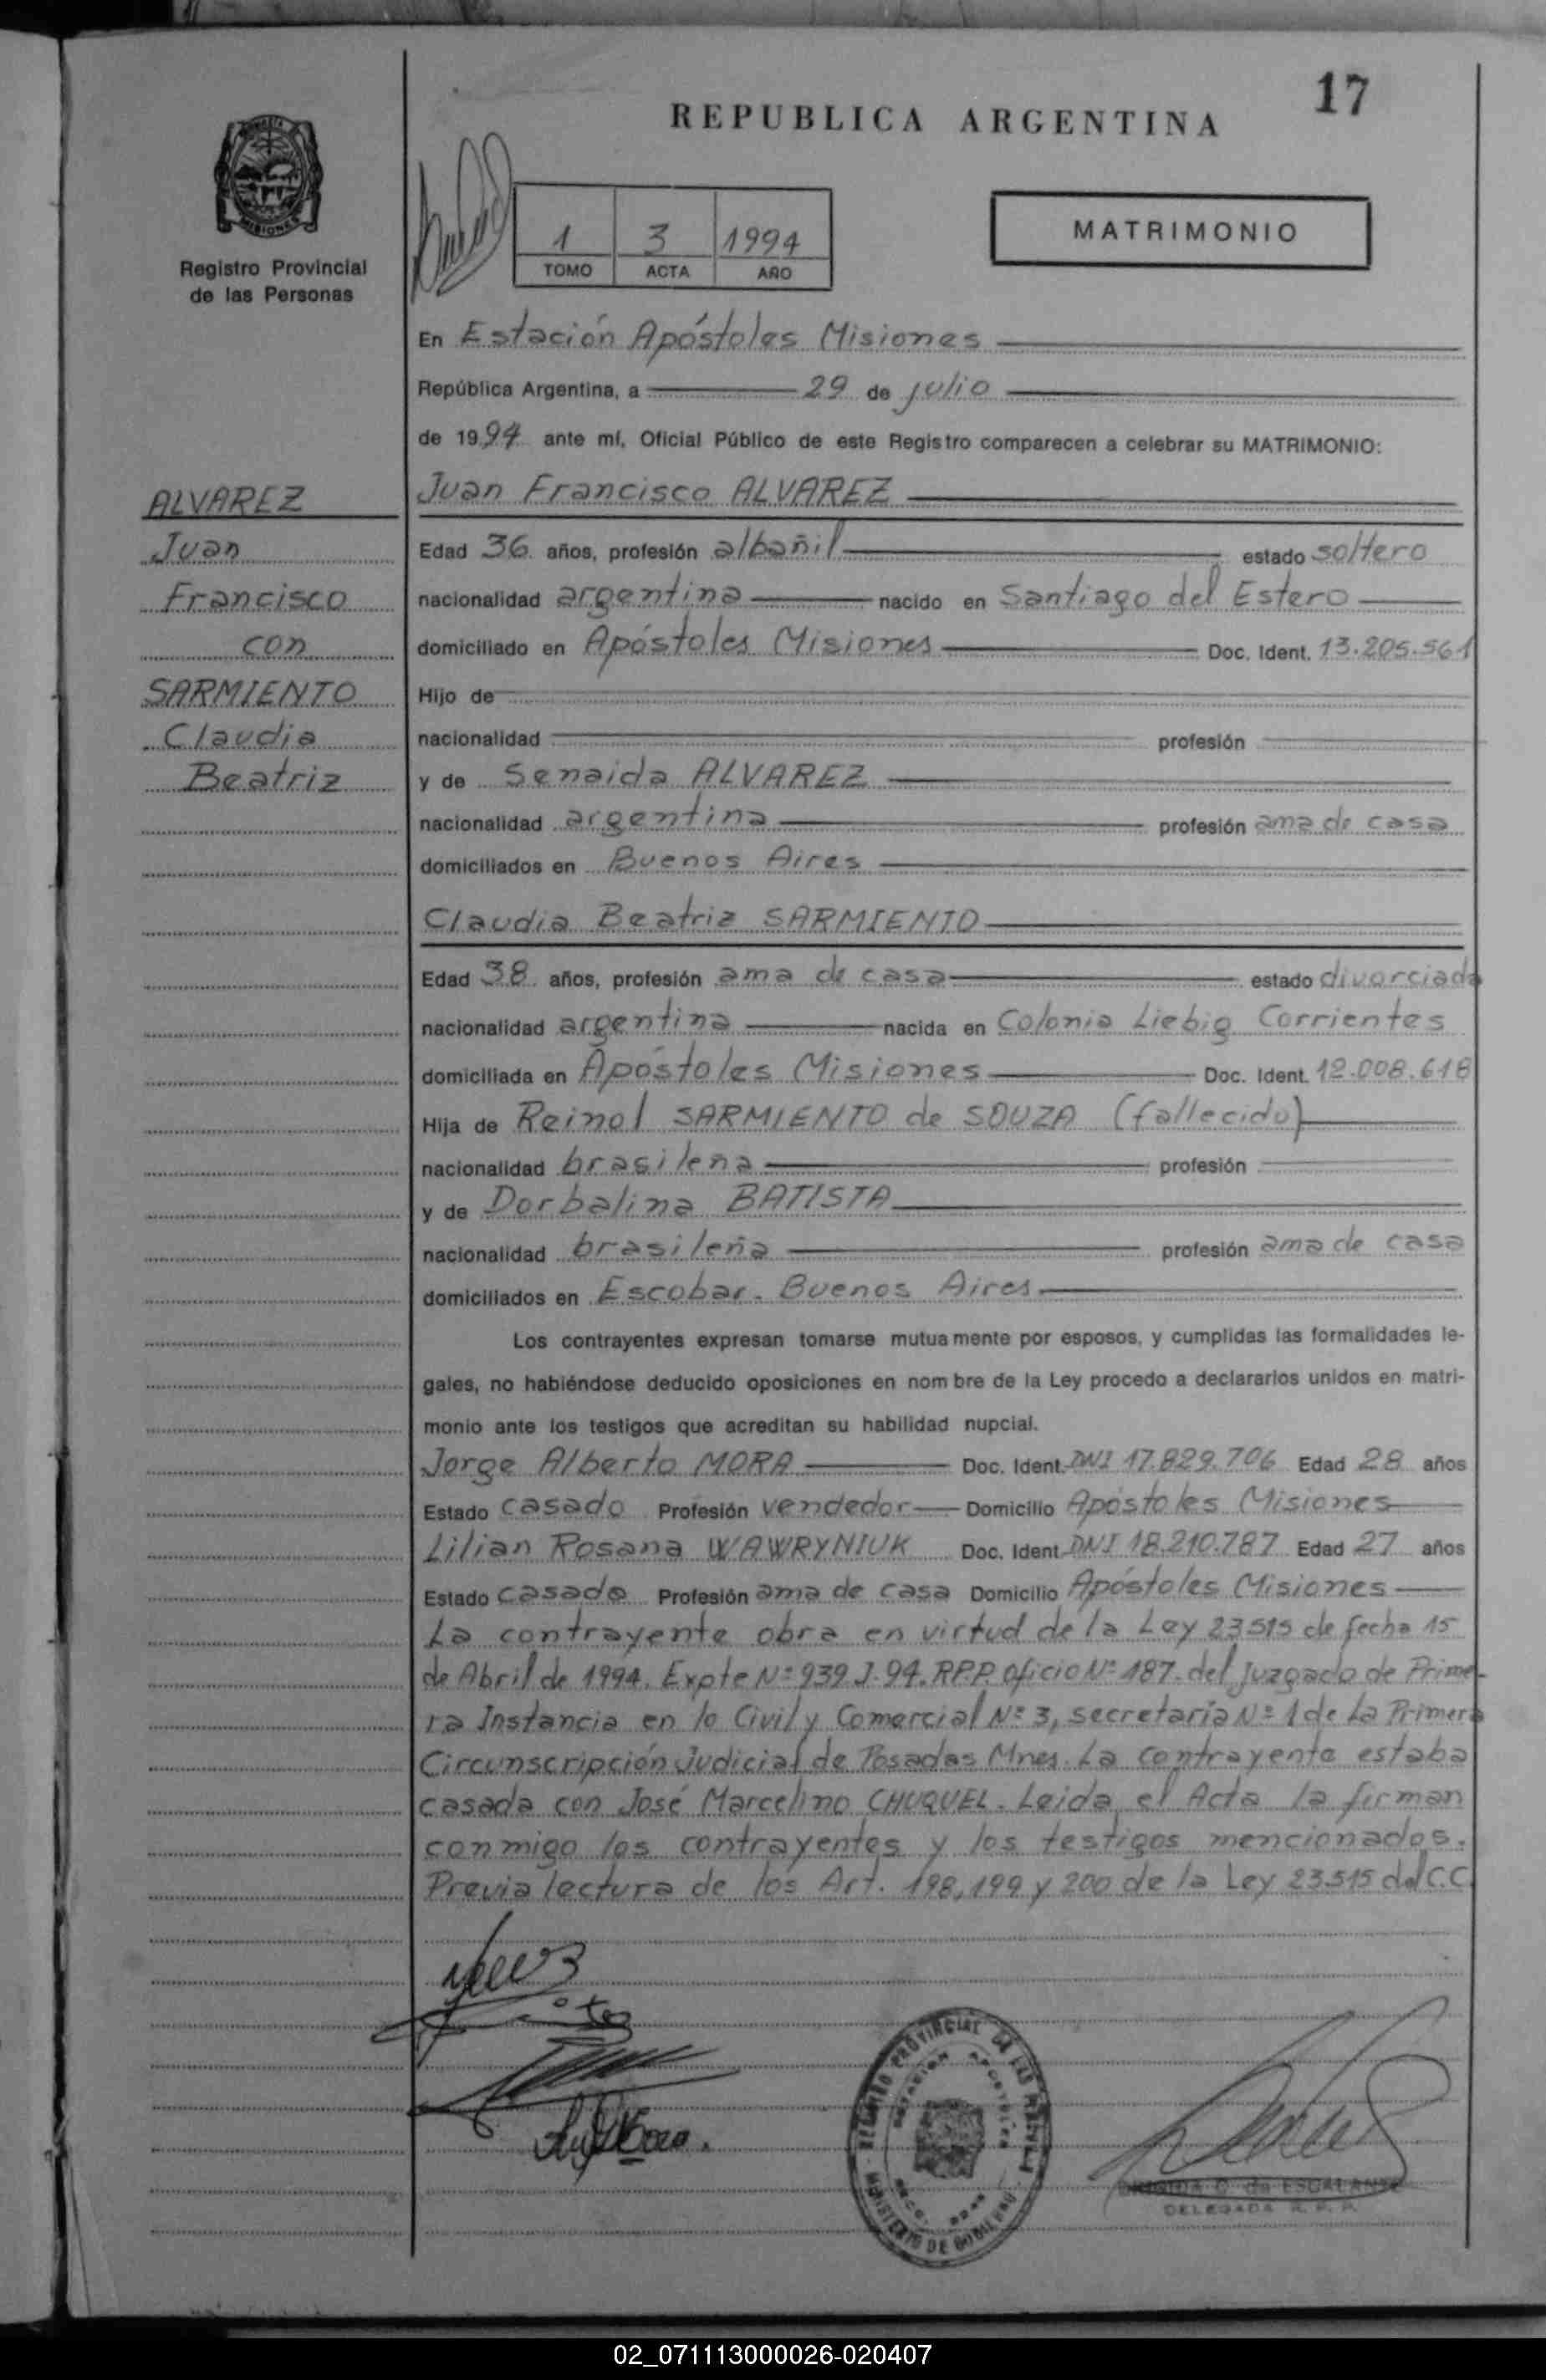 17
REPUBLICA ARGENTINA
MISIONES
Registro Provincial
de las Personas
1 3 1994
TOMO ACTA AÑO
MATRIMONIO
En Estación Apóstoles Misiones
República Argentina, a 29 de julio
de 1994 ante mí, Oficial Público de este Registro comparecen a celebrar su MATRIMONIO:
ALVAREZ
Juan
Francisco
con
SARMIENTO
Claudia
Beatriz
Juan Francisco ALVAREZ
Edad 36 años, profesión albañil estado soltero
nacionalidad argentina nacido en Santiago del Estero
domiciliado en Apóstoles Misiones Doc. Ident. 13.205.561
Hijo de
nacionalidad profesión
y de Senaida ALVAREZ
nacionalidad argentina profesión ama de casa
domiciliados en Buenos Aires
Claudia Beatriz SARMIENTO
Edad 38 años, profesión ama de casa estado divorciada
nacionalidad argentina nacida en Colonia Liebig Corrientes
domiciliada en Apóstoles Misiones Doc. Ident. 12.008.618
Hija de Reinol SARMIENTO de SOUZA (fallecido)
nacionalidad brasileña profesión
y de Dorbalina BATISTA
nacionalidad brasileña profesión ama de casa
domiciliados en Escobar. Buenos Aires
Los contrayentes expresan tomarse mutuamente por esposos, y cumplidas las formalidades le-
gales, no habiéndose deducido oposiciones en nombre de la Ley procedo a declararlos unidos en matri-
monio ante los testigos que acreditan su habilidad nupcial.
Jorge Alberto MORA Doc. Ident. DNI 17.829.706 Edad 28 años
Estado casado Profesión vendedor Domicilio Apóstoles Misiones
Lilian Rosana WAWRYNIUK Doc. Ident. DNI 18.210.787 Edad 27 años
Estado casado Profesión ama de casa Domicilio Apóstoles Misiones
La contrayente obra en virtud de la Ley 23515 de fecha 15
de Abril de 1994. Expte Nº 939 J. 94. R.P.P. oficio Nº 187. del Juzgado de Prime-
ra Instancia en lo Civil y Comercial Nº 3, secretaría Nº 1 de La Primera
Circunscripción Judicial de Posadas Mnes. La contrayente estaba
casada con José Marcelino CHUQUEL. Leida el Acta la firman
conmigo los contrayentes y los testigos mencionados.
Previa lectura de los Art. 198, 199 y 200 de la Ley 23515 del C.C.
REGISTRO PROVINCIAL DE LAS PERSONAS
ESTACION APOSTOLES
MINISTERIO DE GOBIERNO
de ESCALANTE
DELEGADA R. P. P.
02_071113000026-020407